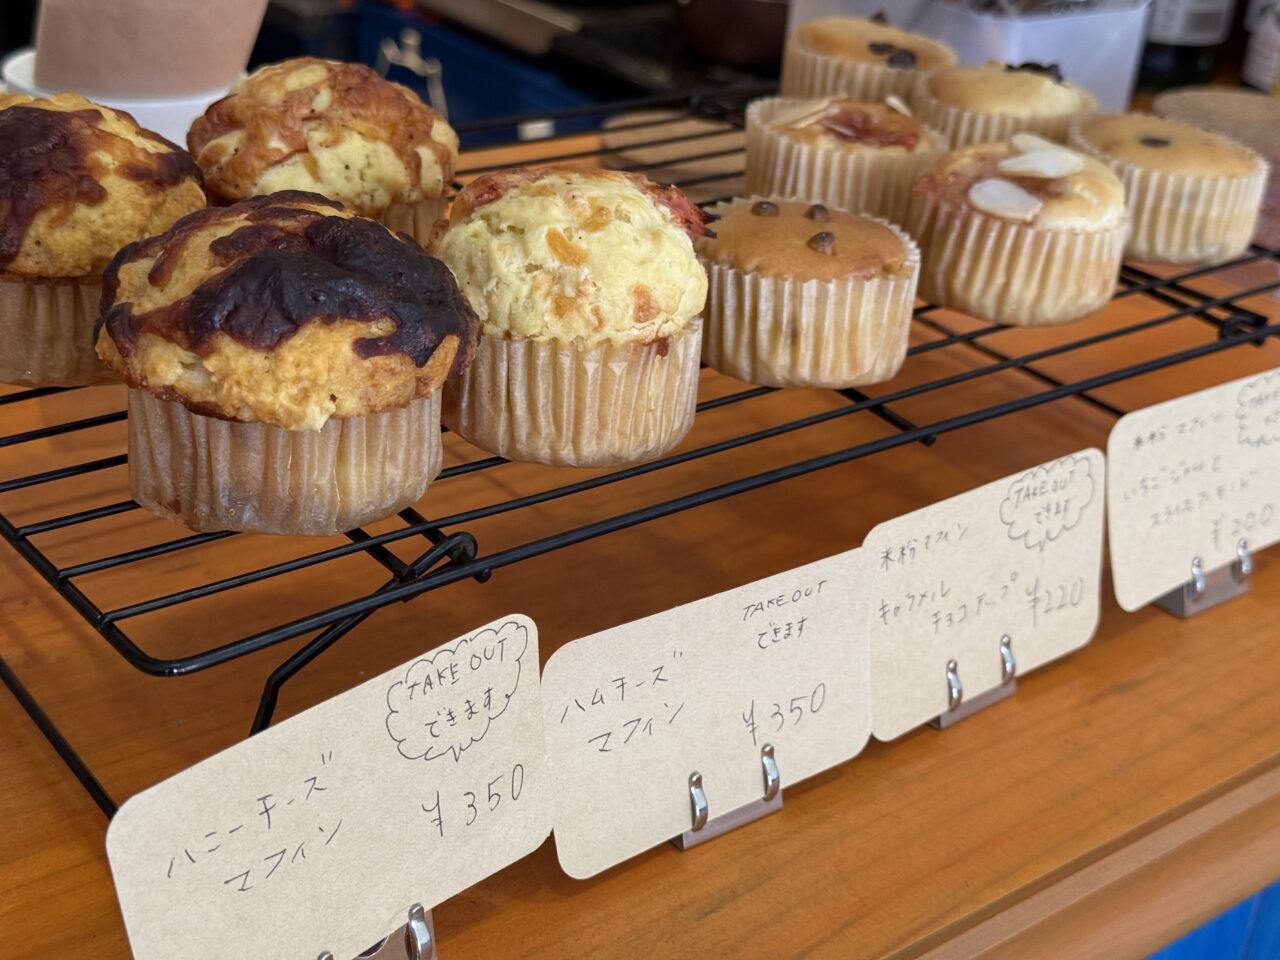 TAKE OUT
できます
ハニーチーズ
マフィン
¥350
TAKEOUT
できます
ハムチーズ
マフィン
¥350
TAKEOUT
できます
米粉マフィン
キャラメル
チョコチップ
¥220
TAKE
米粉マフィン
いちごジャムと
スライスアーモンド
¥200